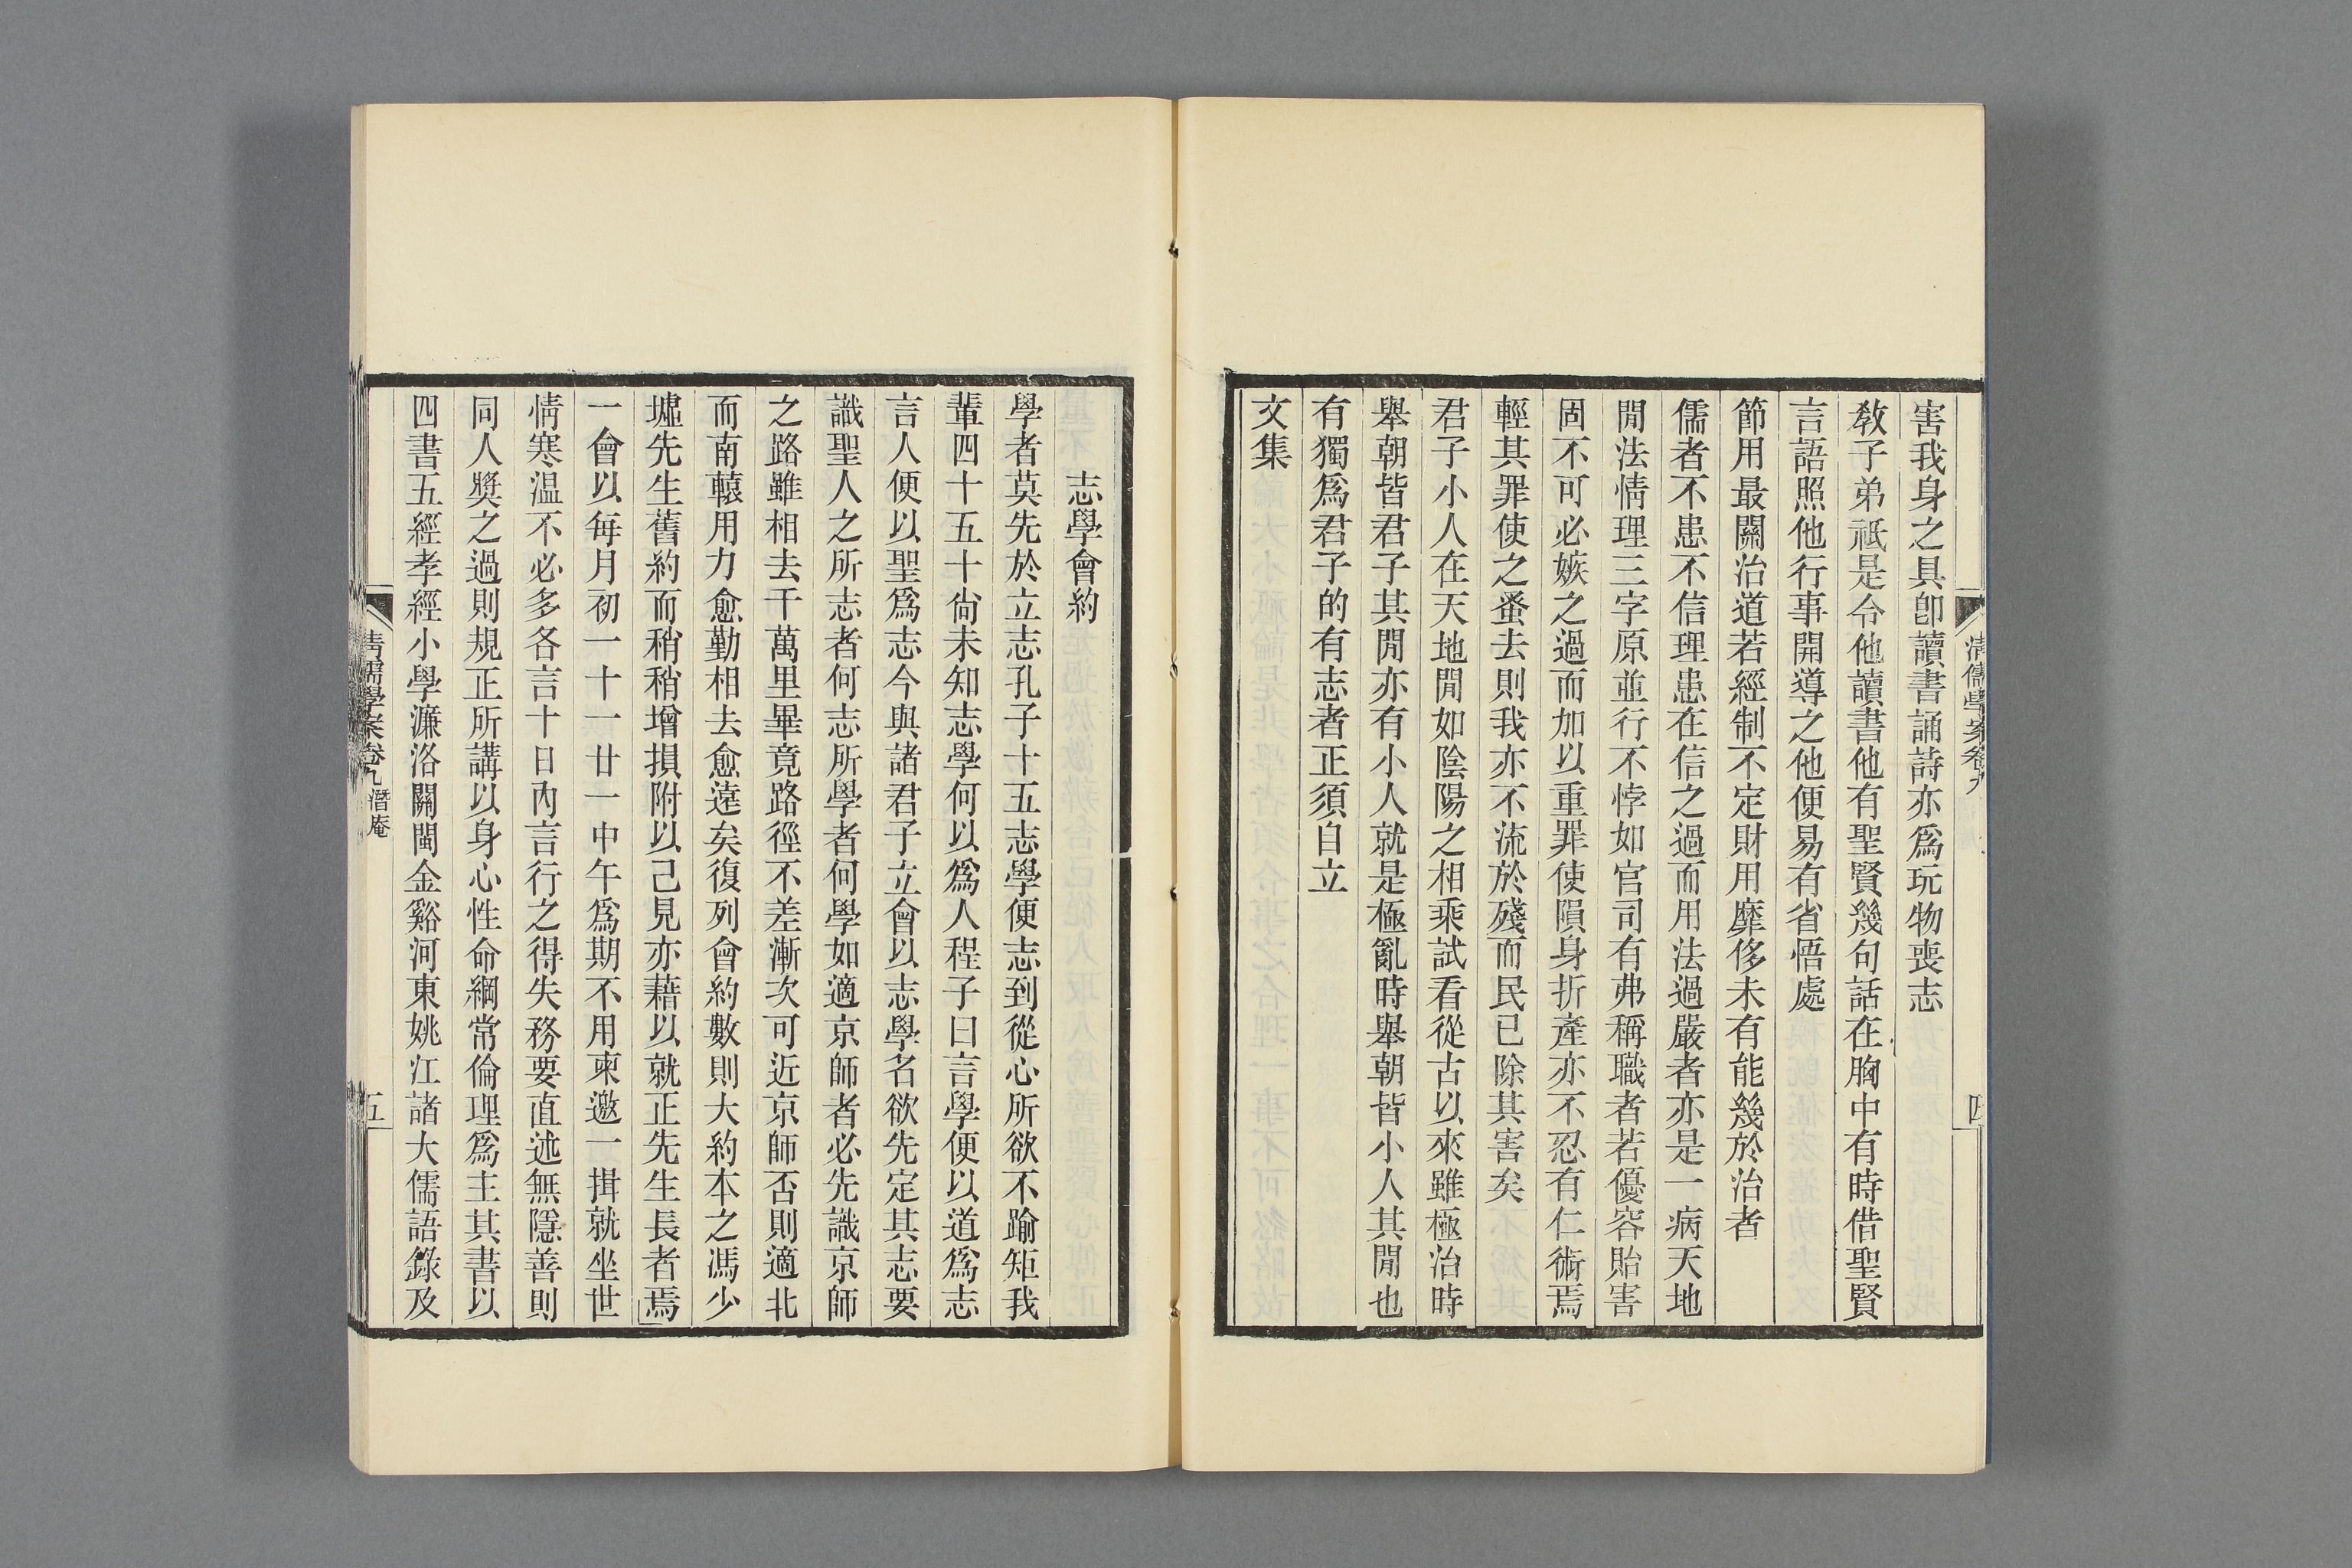 清儒學案卷九
四
害我身之具卽讀書誦詩亦爲玩物喪志
敎子弟祗是令他讀書他有聖賢幾句話在胸中有時借聖賢
言語照他行事開導之他便易有省悟處
節用最關治道若經制不定財用靡侈未有能幾於治者
儒者不患不信理患在信之過而用法過嚴者亦是一病天地
閒法情理三字原並行不悖如官司有弗稱職者若優容貽害
固不可必嫉之過而加以重罪使隕身折產亦不忍有仁術焉
輕其罪使之蚤去則我亦不流於殘而民已除其害矣
君子小人在天地閒如陰陽之相乘試看從古以來雖極治時
舉朝皆君子其閒亦有小人就是極亂時舉朝皆小人其閒也
有獨爲君子的有志者正須自立
文集
志學會約
學者莫先於立志孔子十五志學便志到從心所欲不踰矩我
輩四十五十尙未知志學何以爲人程子曰言學便以道爲志
言人便以聖爲志今與諸君子立會以志學名欲先定其志要
識聖人之所志者何志所學者何學如適京師者必先識京師
之路雖相去千萬里畢竟路徑不差漸次可近京師否則適北
而南轅用力愈勤相去愈遠矣復列會約數則大約本之馮少
墟先生舊約而稍稍增損附以己見亦藉以就正先生長者焉
一會以每月初一十一廿一中午爲期不用柬邀一揖就坐世
情寒温不必多各言十日內言行之得失務要直述無隱善則
同人獎之過則規正所講以身心性命綱常倫理爲主其書以
四書五經孝經小學濂洛關閩金谿河東姚江諸大儒語錄及
清儒學案卷九 潛庵
五